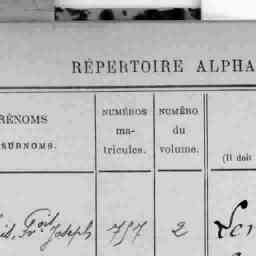 RÉPERTOIRE ALPHA
RÉNOMS
SURNOMS.
NUMÉROS
ma-
tricules.
NUMÉRO
du
volume.
(Il doit
Fr.ois Joseph 757 2